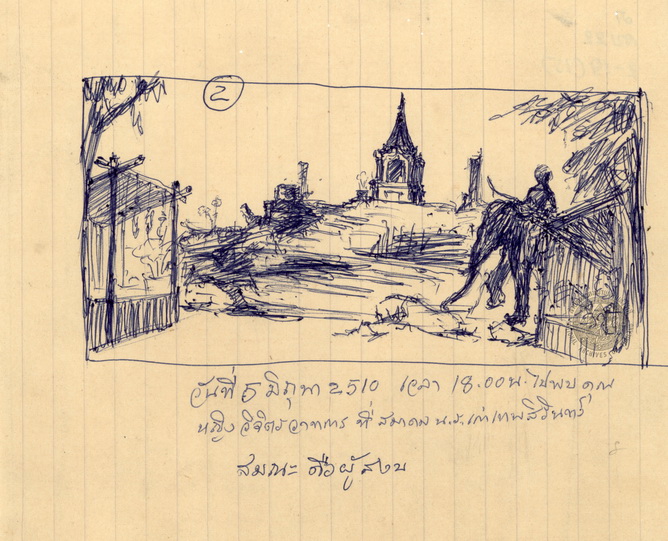 2
วันที่ 5 มิถุนา 2510 เวลา 18.00 น. ไปพบ คุณ
หญิง วิจิตรวาทการ ที่ สมาคม น.ร.เก่าเทพศิรินทร์
สมณะ คือ ผู้ สงบ